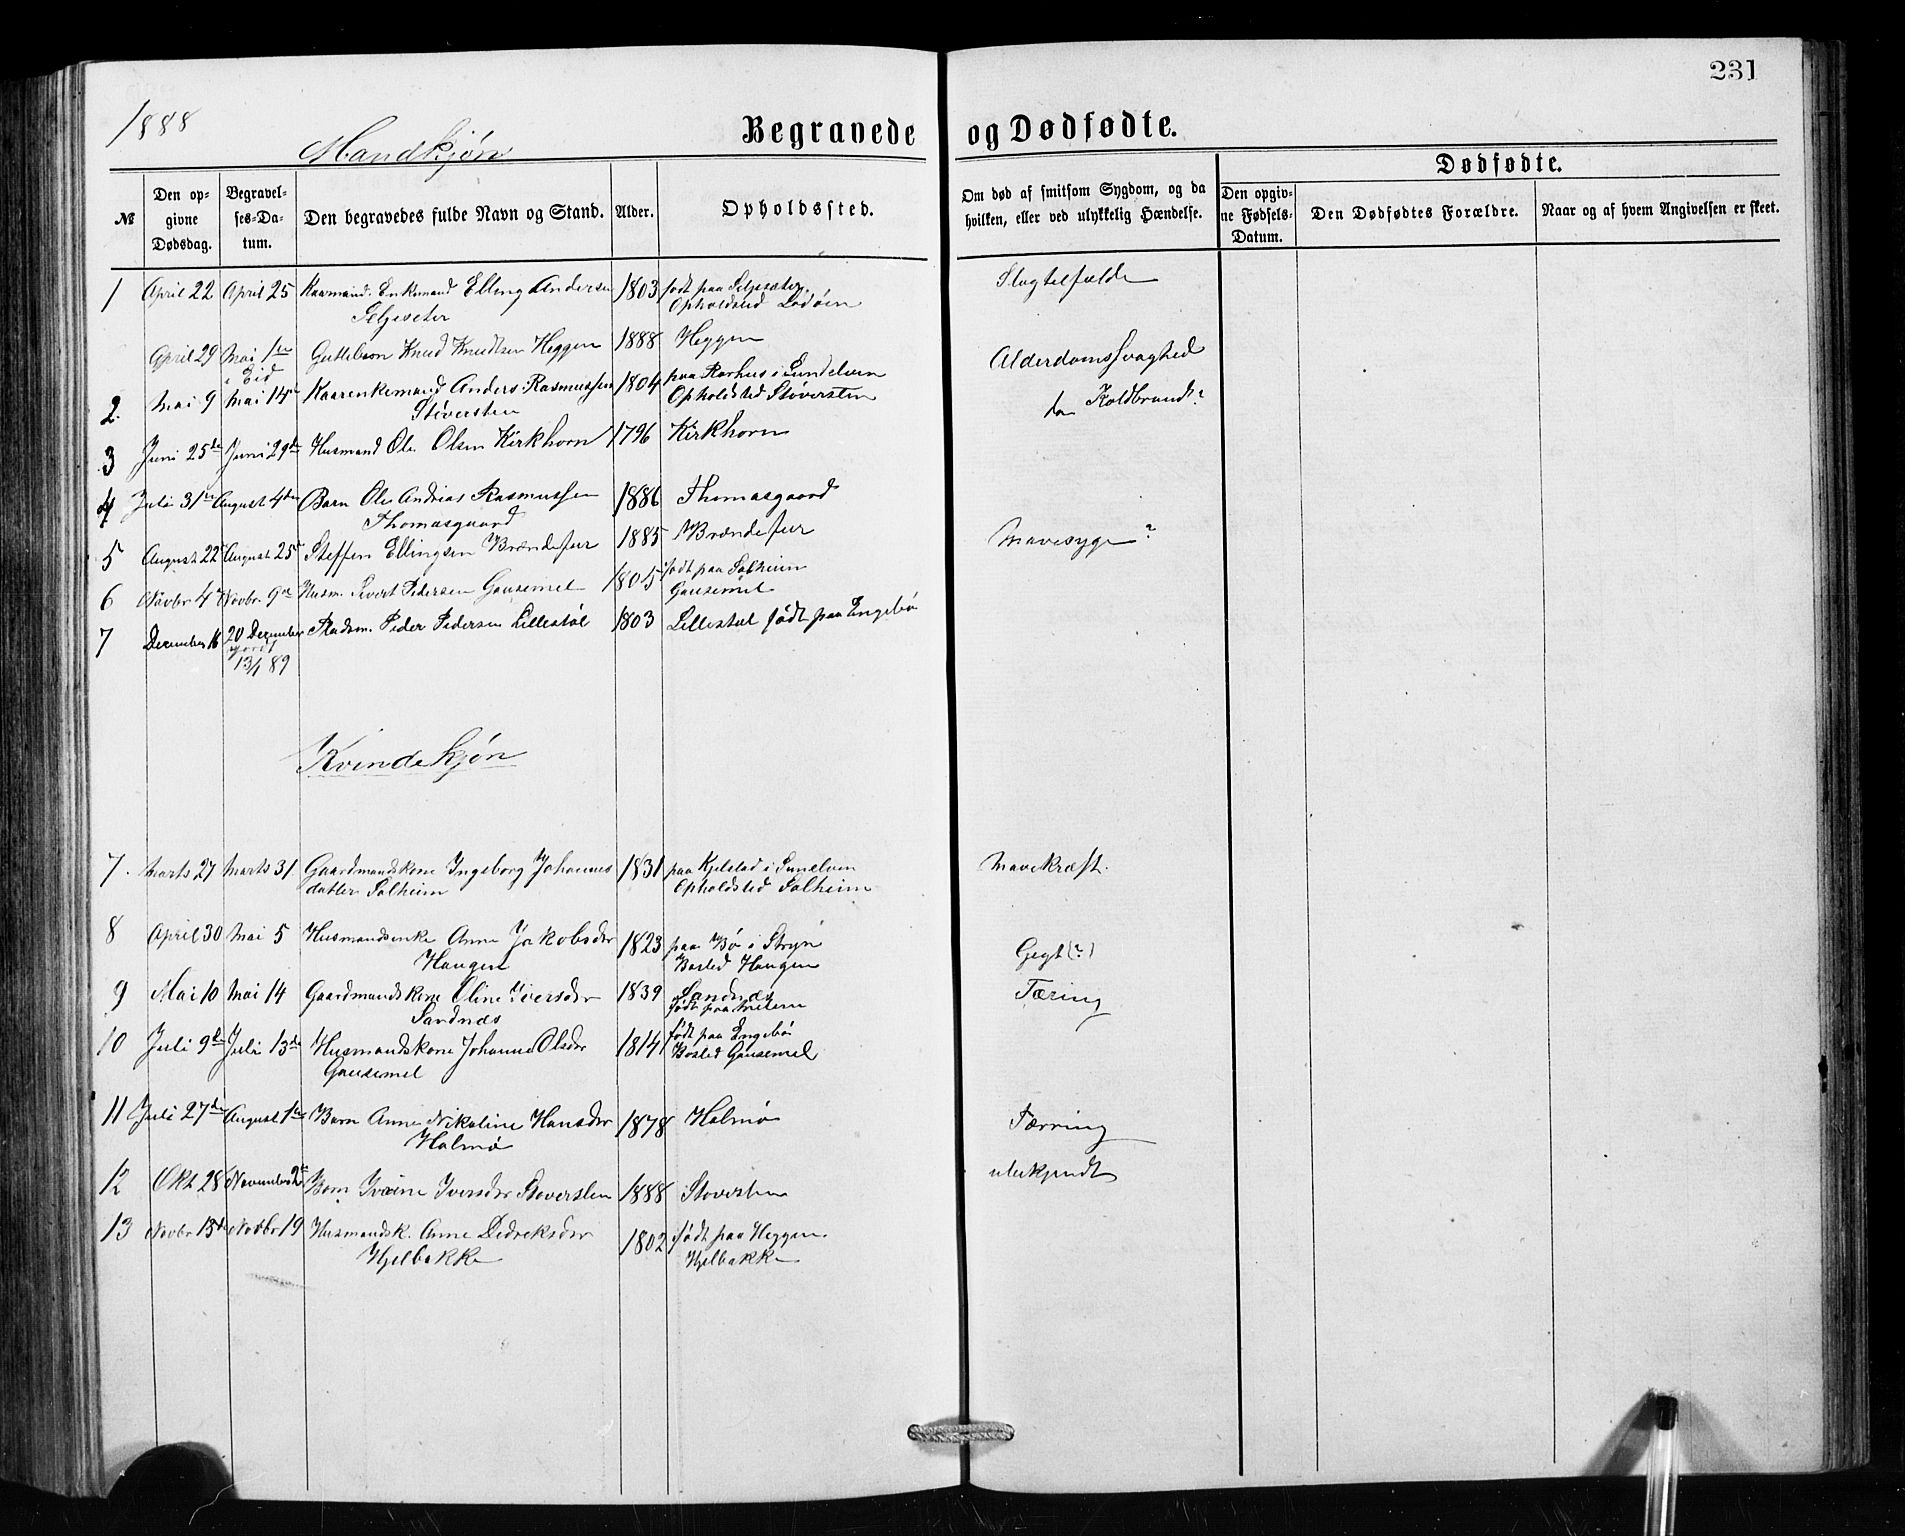 231
1888
Mandkjøn
Begravede og Dødfødte.
Dødfødte.
№
Den opgivne Dødsdag.
Begravelses-Datum.
Den begravedes fulde Navn og Stand.
Alder.
Opholdssted.
Om død af smitsom Sygdom, og da hvilken, eller ved ulykkelig Hændelse.
Den opgivne Fødsels-Datum.
Den Dødfødtes Forældre.
Naar og af hvem Angivelsen er skeet.
1 April 22 April 25 Kaarmand. Enkemand Elling Andersen 1803 født paa Seljesæter Slagtilfælde
Seljeseter Opholdsted
April 29 Mai 1te Guttebarn Knud Knudtsen Heggen 1888 Heggen Alderdomssvaghed
i Eid
2. Mai 9 Mai 14de Kaarenkemand Anders Rasmussen 1804 paa Aarhus i Sundelven Koldbrand?
Støversten Opholdsted Støversten
3 Juni 25de Juni 29de Husmand Ole Olsen Kirkhorn 1796 Kirkhorn
4 Juli 31te August 4de Barn Ole Andrias Rasmussen 1886 Thomasgaard
Thomasgaard
5 August 22 August 25 Steffen Ellingsen Brændefur 1885 Brændefur Mavesyge?
6 Novbr 4 Novbr. 9de Husm. Sivert Pedersen Gausemel 1805 født paa Solheim
Gausemel
7 December 16 20 December Peder Pedersen Lillestøl 1803 Lillestøl født paa Engebø
jordf
13/1 89
Kvindekjøn
7. Marts 27 Marts 31 Gaardmandskone Ingeborg Johannes 1831 paa Kjelstad i Sunelven Mavekræft.
datter Solheim Opholdsted Solheim
8 April 30 Mai 5 Husmandsenke Anne Jakobsdr 1823 paa Bø i Stryn Gegt (?)
Haugen Bosted Haugen
9 Mai 10 Mai 14 Gaardmandskone Oline Iversdr 1839 Sandnes Tæring
Sandnæs født paa
10 Juli 9de Juli 13de Husmandskone Johanne Olsdr 1814 født paa Engebø
Gausemel Bosted Gausemel
11 Juli 27de August 1te Barn Anne Nikoline Hansdr 1878 Holmø Tærring
Holmø
12 Okt 28 November 2 Barn Iverine Iversdr Støversten 1888 Støversten ubekjendt
13 Novbr 15de Novbr 19 Husmandsk. Anne Didreksdr 1802 født paa Heggen.
Hjelbakke Hjelbakke